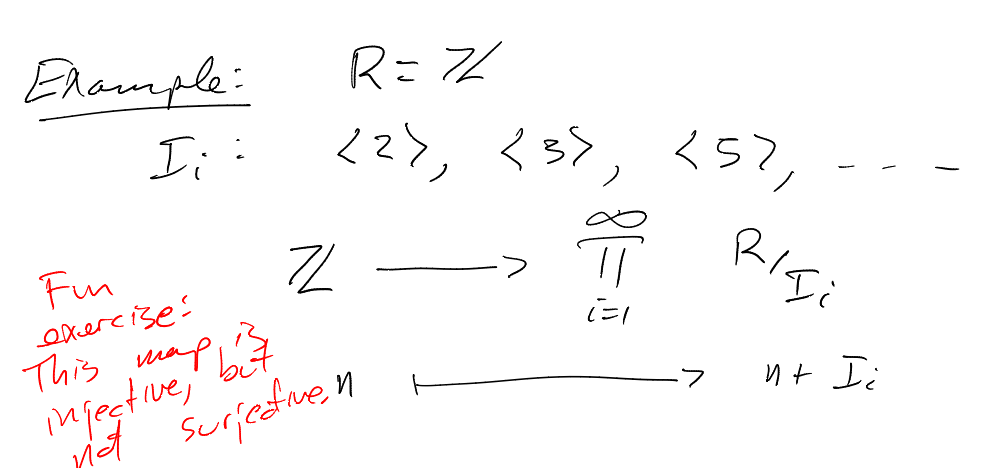 Example: R = ℤ
I_i : <2>, <3>, <5>, - - -
ℤ ⟶ ∏_{i=1}^{∞} R/I_i
n ⟼ n + I_i
Fun
exercise:
This map is
injective, but
not surjective.